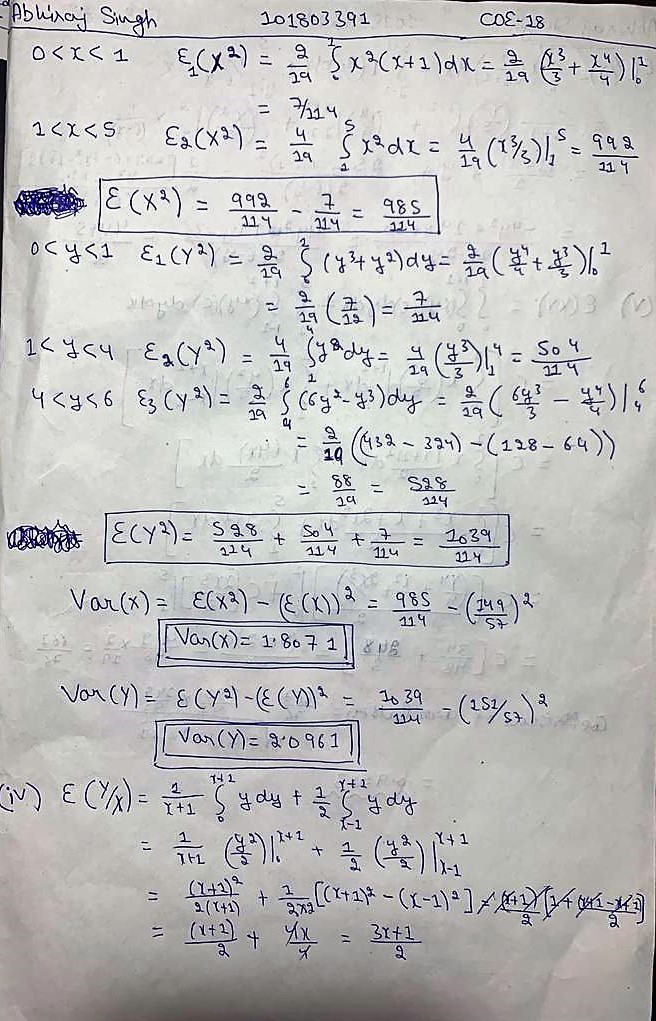 Abhiraj Singh 101803391 COE-18
0<x<1 ε₁(X²) = 2/19 ∫₀¹ x²(x+1)dx = 2/19 (x³/3 + x⁴/4)|₀¹
= 7/114
1<x<5 ε₂(X²) = 4/19 ∫₁⁵ x²dx = 4/19 (x³/3)|₁⁵ = 992/114
ε(X²) = 992/114 - 7/114 = 985/114
0<y<1 ε₁(Y²) = 2/19 ∫₀¹ (y³+y²)dy = 2/19 (y⁴/4 + y³/3)|₀¹
= 2/19 (7/12) = 7/114
1<y<4 ε₂(Y²) = 4/19 ∫₁⁴ y²dy = 4/19 (y³/3)|₁⁴ = 504/114
4<y<6 ε₃(Y²) = 2/19 ∫₄⁶ (6y²-y³)dy = 2/19 (6y³/3 - y⁴/4)|₄⁶
= 2/19 ((432-324)-(128-64))
= 88/19 = 528/114
ε(Y²) = 528/114 + 504/114 + 7/114 = 1039/114
Var(X) = ε(X²)-(ε(X))² = 985/114 - (149/57)²
Var(X) = 1.8071
Var(Y) = ε(Y²)-(ε(Y))² = 1039/114 - (151/57)²
Var(Y) = 2.0961
(iv) ε(Y/X) = 1/(x+1) ∫₀ˣ⁺¹ y dy + 1/2 ∫ₓ₋₁ˣ⁺¹ y dy
= 1/(x+1) (y²/2)|₀ˣ⁺¹ + 1/2 (y²/2)|ₓ₋₁ˣ⁺¹
= (x+1)²/2(x+1) + 1/(2×2) [(x+1)²-(x-1)²]
= (x+1)/2 + 4x/4 = (3x+1)/2